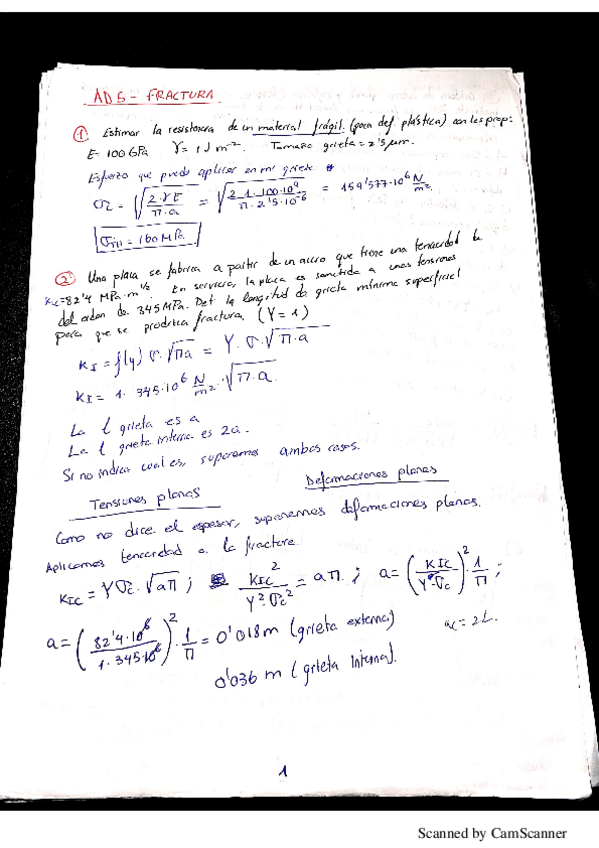 AD 5 - FRACTURA
① Estimar la resistencia de un material frágil (poca def plástica) con les prop:
E = 100 GPa γ = 1 J m⁻². Tamaño grieta = 2'5 μm.
Esfuerzo que puedo aplicar en mi grieta
σc = √(2·γE / π·a) = √(2·1·100·10⁹ / π·2'5·10⁻⁶) = 159'577·10⁶ N/m²
= 160 MPa
② Una placa se fabrica a partir de un acero que tiene una tenacidad de
KIC = 82'4 MPa·m^1/2. En servicio, la placa es sometida a unas tensiones
del orden de 345 MPa. Det la longitud de grieta mínima superficial
para que se produzca fractura (Y = 1)
KI = f(y) σ·√πa = Y·σ·√π·a
KI = 1·345·10⁶ N/m²·√π·a
La l grieta es a
La l grieta interna es 2a.
Si no indica cual es, suponemos ambos casos.
Tensiones planas Deformaciones planas
Como no dice el espesor, suponemos deformaciones planas.
Aplicamos tenacidad a la fractura.
KIC = Yσc·√aπ ; KIC²/Y²·σc² = aπ ; a = (KIC/Y·σc)²·1/π ;
a = (82'4·10⁶/1·345·10⁶)²·1/π = 0'018 m (grieta externa)
0'036 m (grieta interna).
1
Scanned by CamScanner